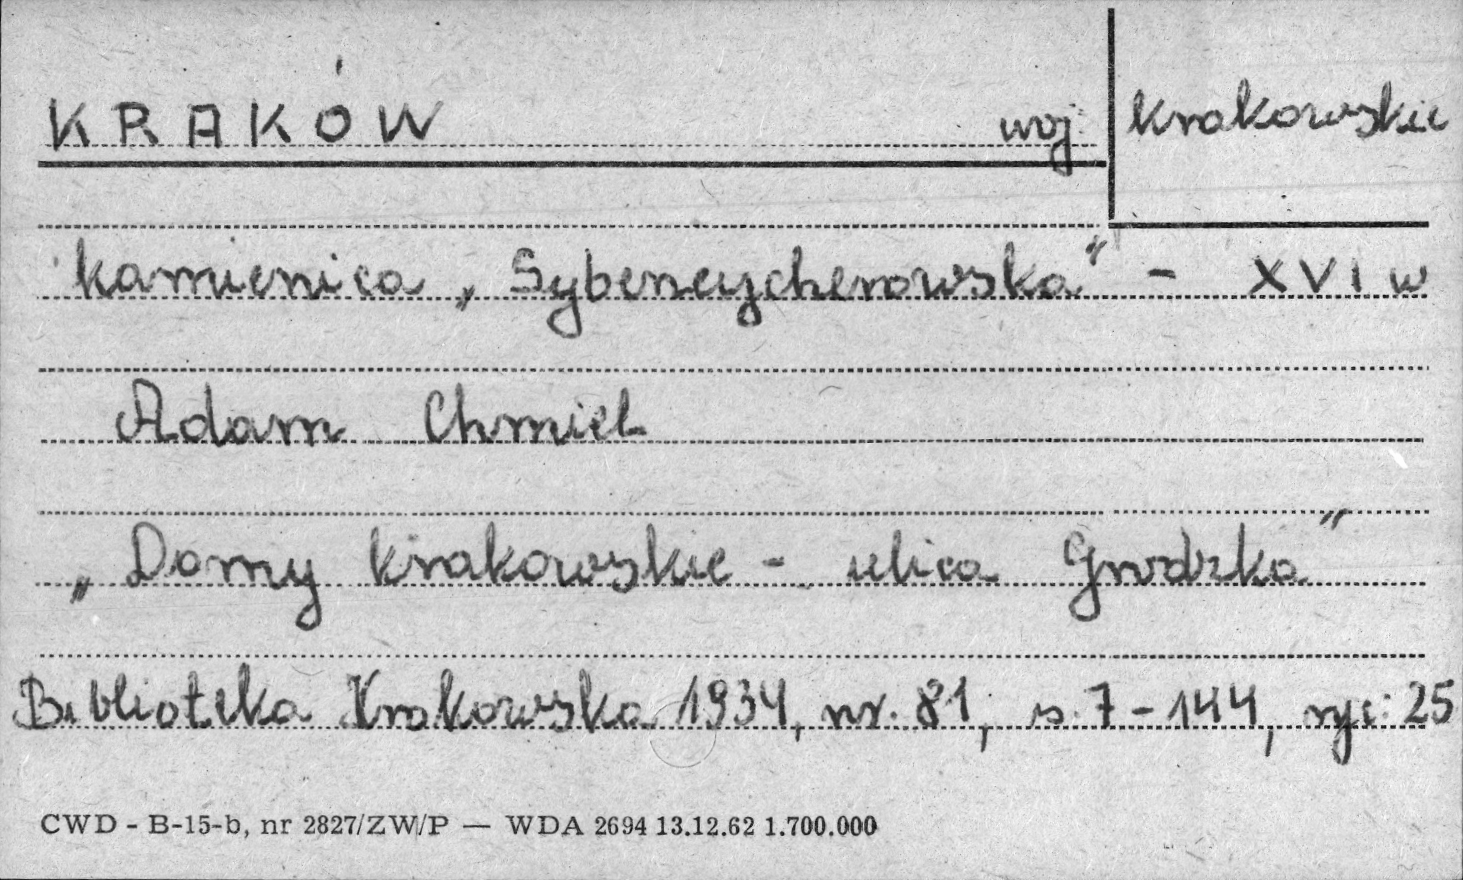 KRAKÓW woj. krakowskie
kamienica „Sybeneycherowska" - XVI w
Adam Chmiel
„Domy krakowskie - ulica Grodzka"
Biblioteka Krakowska 1934, nr. 81, s. 7-144, ryc: 25
CWD - B-15-b, nr 2827/ZW/P — WDA 2694 13.12.62 1.700.000